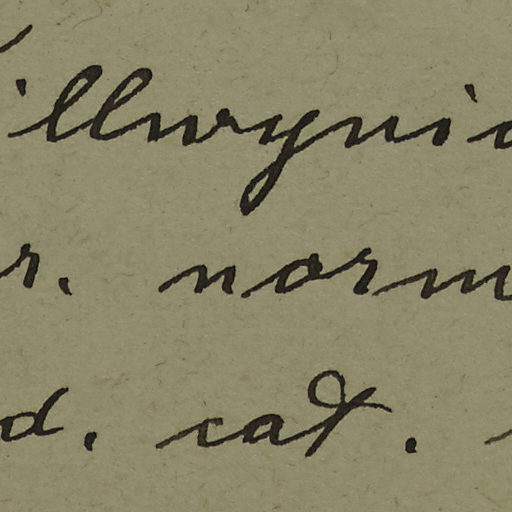 illwynia
r. norm
d. cat.